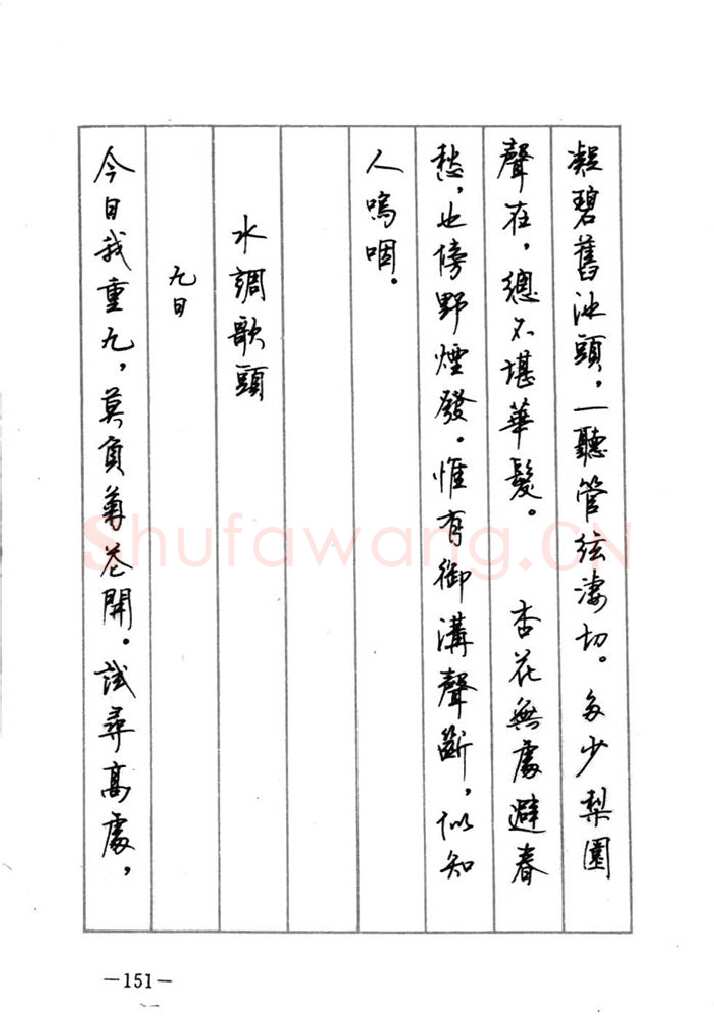 凝碧舊池頭，一聽管絃淒切。多少梨園
聲在，總不堪華髮。 杏花無處避春
愁，也傍野煙發。惟有御溝聲斷，似知
人嗚咽。
水調歌頭
九日
今日我重九，莫負菊花開。試尋高處，
—151—
Shufawang.CN